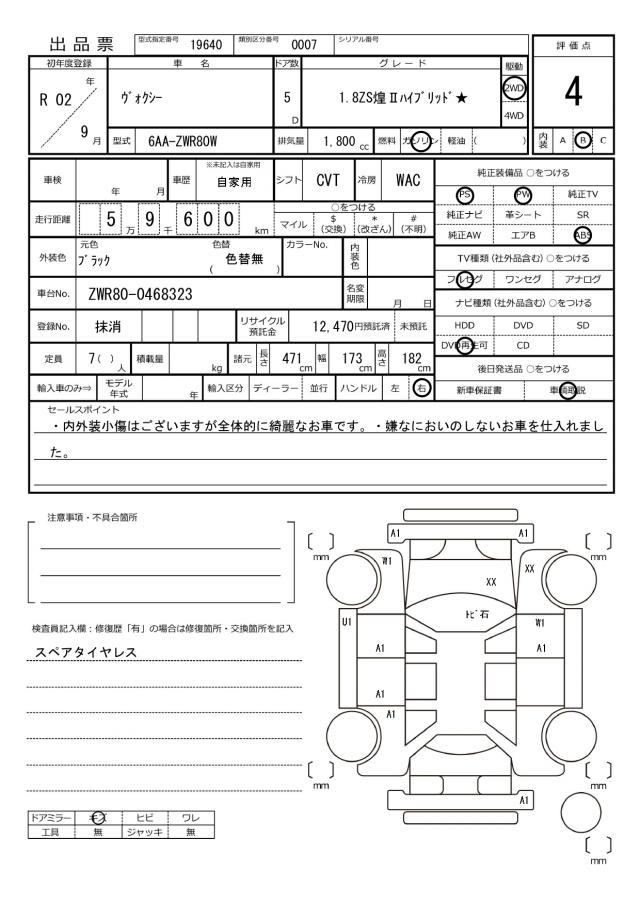 出品票
型式指定番号 19640 類別区分番号 0007 シリアル番号
評価点
4
初年度登録 車名 ドア数 グレード 駆動
R 02 年 9 月
ヴォクシー
5 D
1.8ZS煌Ⅱハイブリッド★
2WD
4WD
型式 6AA-ZWR80W 排気量 1,800 cc 燃料 ガソリン 軽油 ( )
内装 A B C
車検 年 月 車歴 ※未記入は自家用 自家用 シフト CVT 冷房 WAC
純正装備品 ○をつける
PS PW 純正TV
純正ナビ 革シート SR
純正AW エアB ABS
走行距離 5 万 9 千 6 0 0 km
○をつける
マイル $(交換) *(改ざん) #(不明)
外装色 元色 ブラック 色替 ( 色替無 ) カラーNo. 内装色
TV種類(社外品含む) ○をつける
フルセグ ワンセグ アナログ
車台No. ZWR80-0468323 名変期限 月 日
ナビ種類(社外品含む) ○をつける
HDD DVD SD
DVD再生可 CD
登録No. 抹消 リサイクル預託金 12,470円預託済 未預託
定員 7( ) 人 積載量 kg 諸元 長さ 471 cm 幅 173 cm 高さ 182 cm
後日発送品 ○をつける
新車保証書 車輌取説
輸入車のみ⇒ モデル年式 年 輸入区分 ディーラー 並行 ハンドル 左 右
セールスポイント
・内外装小傷はございますが全体的に綺麗なお車です。・嫌なにおいのしないお車を仕入れまし
た。
注意事項・不具合箇所
検査員記入欄：修復歴「有」の場合は修復箇所・交換箇所を記入
スペアタイヤレス
ドアミラー キズ ヒビ ワレ
工具 無 ジャッキ 無
A1 A1
mm mm
W1 XX
XX
トビ石
U1 W1
A1 A1
A1
A1
mm mm
A1
mm